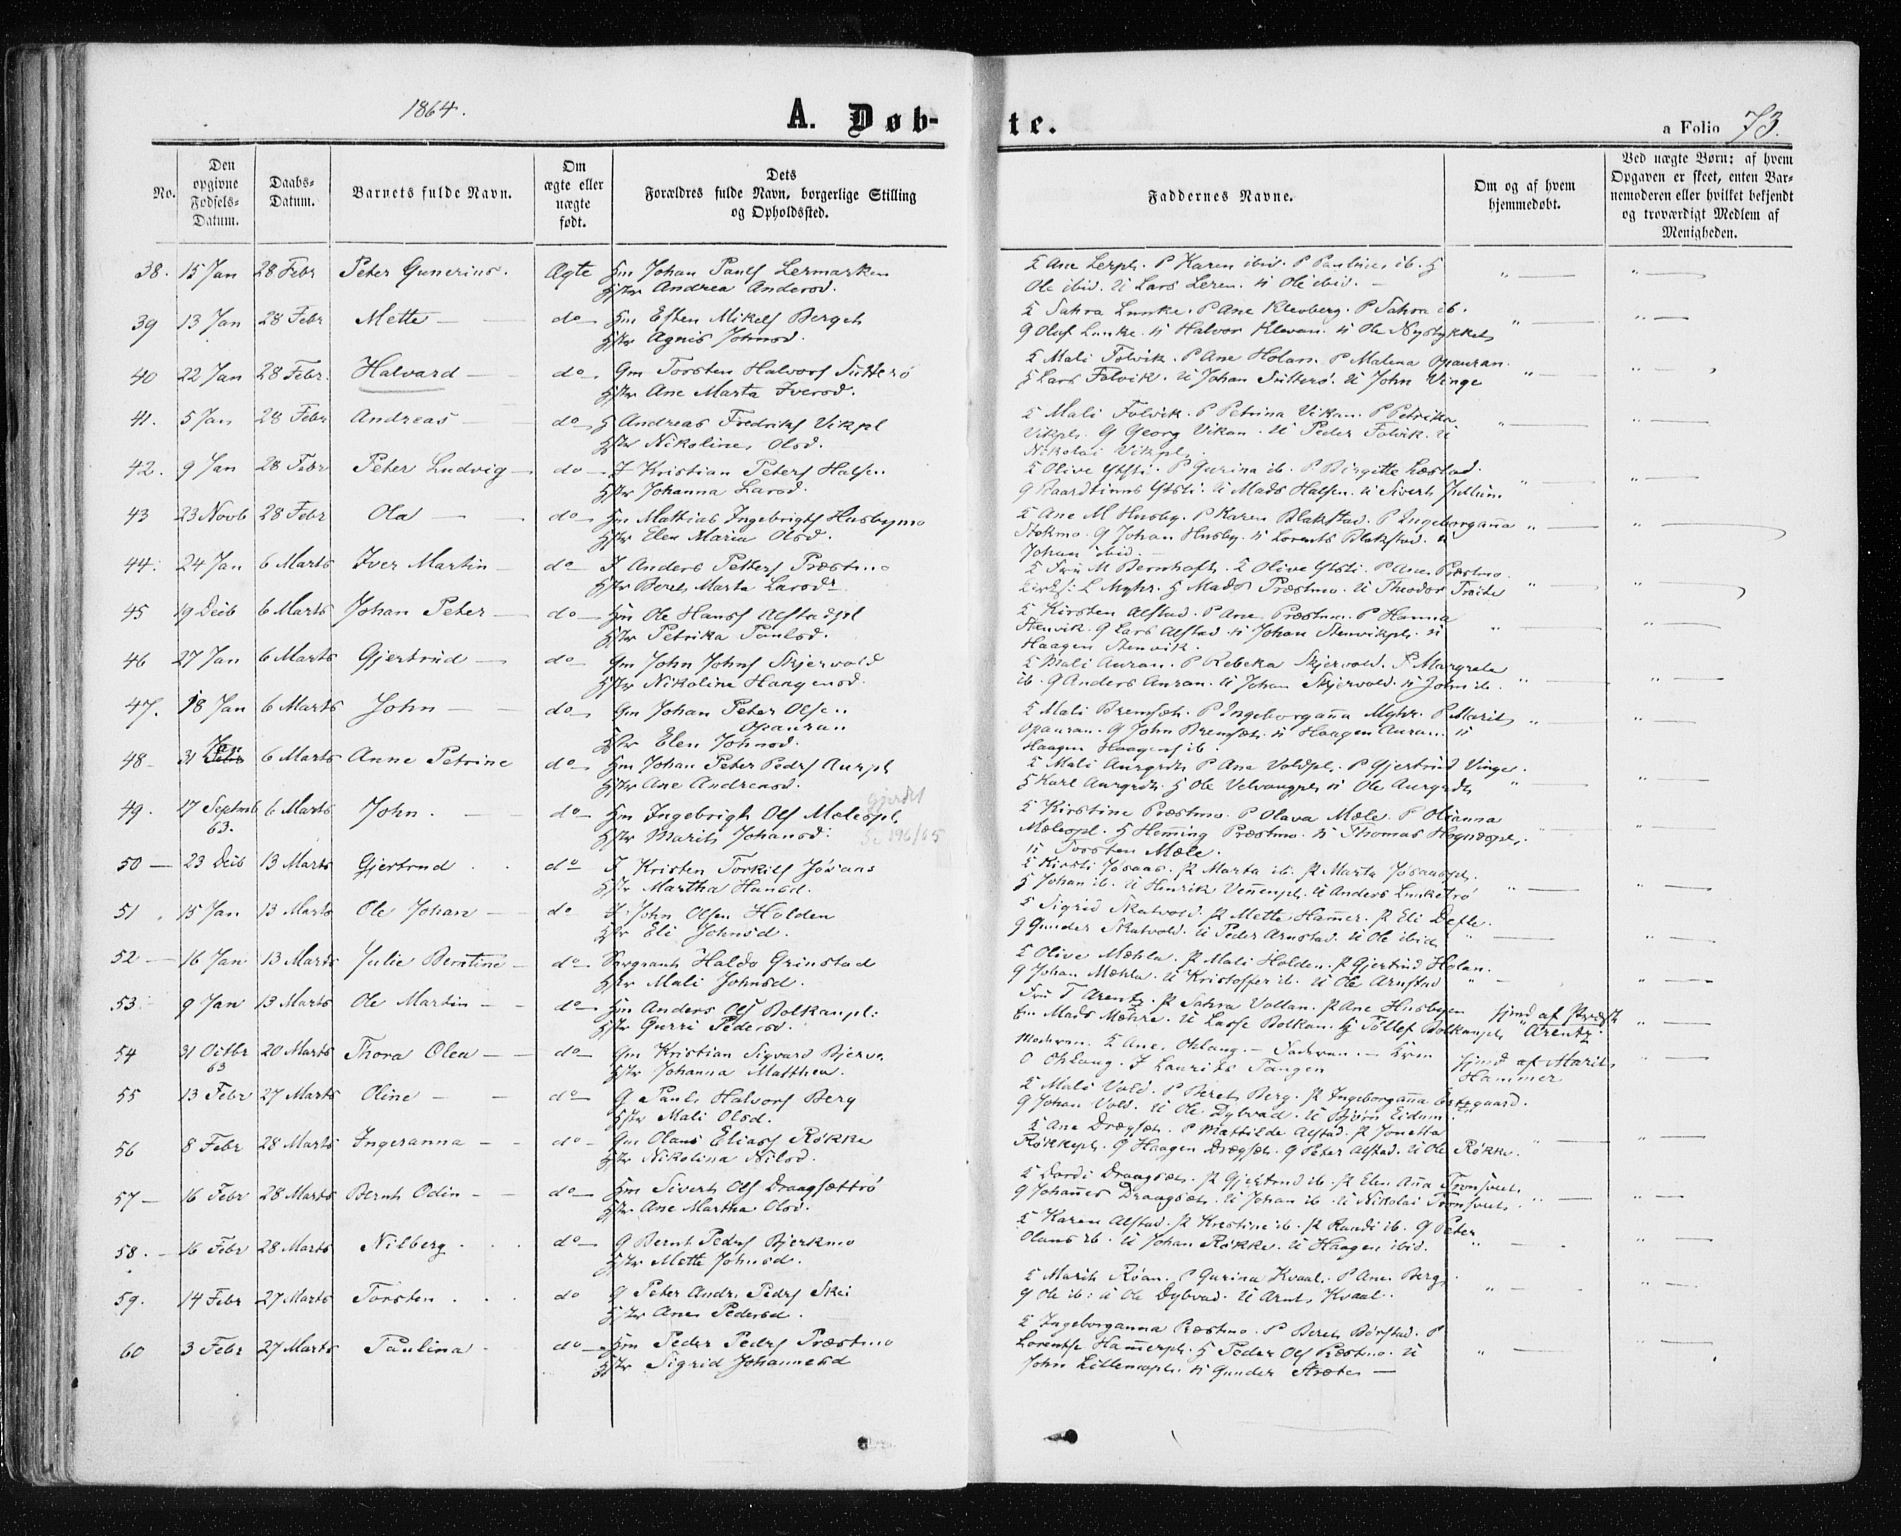 1864.
A. Døb-
te.
a Folio 73.
No.
Den opgivne Fødsels-Datum.
Daabs-Datum.
Barnets fulde Navn.
Om ægte eller uægte født.
Dets Forældres fulde Navn, borgerlige Stilling og Opholdssted.
Faddernes Navne.
Om og af hvem hjemmedøbt.
Ved uægte Børn: af hvem Opgaven er skeet, enten Barnemoderen eller hvilket bekjendt og troværdigt Medlem af Menigheden.
38. 15 Jan 28 Febr Peter Gunerius. Ægte Hm Johan Pauls Lermarken
Hstr Andrea Andersd.
Ane Lerpl. P Karen ibid. P Pauline ib. G
Ole ibid. U Lars Leren. U Ole ibid. —
39 13 Jan 28 Febr Mette — do Hm Esten Mikels Berget
Hstr Agnis Johnsd.
Sahra Lunke. P Ane Klevberg. P Sahra ib.
G Oluf Lunke. U Halvor Klevan. U Ole Nystykket
40 22 Jan 28 Febr. Halvard — do Gm Torsten Halvors Sutterø
Hstr Ane Marta Iversd.
Mali Folvik. P Ane Holan. P Malena Opauran.
G Lars Folvik. U Johan Sutterø. U John Vinge
41. 5 Jan 28 Febr Andreas — do G Andreas Fredriks Vikpl
Hstr Nikoline Olsd.
Mali Folvik. P Petrina Vikan. P Petrika
Vikpl. G Georg Vikan. U Peder Folvik. U
Nikolai Vikpl.
42. 9 Jan 28 Febr Peter Ludvig — do I Kristian Peters Halsen
Hstr Johanna Larsd.
Olive Ytsti. P Gurina ib. P Birgitte Læstad.
G Baardtinus Ytsti. U Mads Halsen. U Sivert
43 23 Novb 28 Febr Ola — do Hm Mathias Ingebrigts Husbymo
Hstr Elen Maria Olsd.
Ane M Husby. P Karen Blakstad. P Ingeborganna
Stokmo. G Johan Husby. U Lorents Blakstad. U
Johan ibid. —
44. 24 Jan 6 Marts Iver Martin — do I Anders Petters Præstmo
Hstr Beret Marta Larsdr
Fru M Bernhoft. Olive Ytsti. P Ane Præstmo.
L Myhr. G Mads Præstmo. U Theodor Troite
45 19 Decb 6 Marts Johan Peter — do Hm Ole Hans Alstadpl
Hstr Petrika Paulsd.
Kirsten Alstad. P Ane Præstmo. P Hanna
Stenvik. G Lars Alstad. U Johan Stenvikpl. U
Haagen Stenvik.
46 27 Jan 6 Marts Gjertrud — do Gm John Johns Skjervold
Hstr Nikoline Haagensd.
Mali Auran. P Rebeka Skjervold. P Margrete
ib. G Anders Auran. U Johan Skjervold. U John ib.
47. 18 Jan 6 Marts John — do Gm Johan Peter Olsen
Opauran
Hstr Elen Johnsd.
Mali Bremset. P Ingeborganna Myhr. P Marit
Opauran. G John Bremset. U Haagen Auran. U
Haagen Haagens ib.
48 31 Jan Febr 6 Marts Anne Petrine do Hm Johan Peter Peders Aurpl
Hstr Ane Andreasd.
Mali Aurgrdt. P Ana Voldpl. P Gjertrud Vinge.
G Karl Aurgrdt. G Ole Velvangpl. U Ole Aurgrdt
49. 17 Septmb 63. 6 Marts John. do Hm Ingebrigt Ols Mælespl.
Hstr Marit Johansd. 196/65
Kirstine Præstmo. P Olava Mæle. P Olianna
Mælespl. G Heming Præstmo. U Thomas
U Torsten Mæle.
50 — 23 Decb 13 Marts Gjertrud do I Kristen Torkils Jøsaas
Hstr Martha Hansd.
Kirsti Jøsaas. P Marta ib. P Marta Jøsaaspl.
G Johan ib. U Henrik Vennenpl. U Anders Lunketrø
51. 15 Jan 13 Marts Ole Johan — do I John Olsen Holden
Hstr Eli Johnsd.
Sigrid Skatvold. P Mette Hammer. P Eli Defle.
G Gunder Skatvold. U Peder Arnstad. U Ole ibid
52 — 16 Jan 13 Marts Julie Berntine — do Sergeant Haldo Grinstad
Hstr Mali Johnsd.
Olive Mæhla. P Mali Holden. P Gjertrud Holan.
G Johan Mæhla. U Kristoffer ib. U Ole Arnstad
53 9 Jan 13 Marts Ole Martin — do Hm Anders Ols Bolkanpl.
Hstr Gurri Pedersd.
Fru T Arentz. P Sahra Vollan. P Ane Husbyen
Mads Mæhre. U Lasse Bolkan. G Tollef Bolkanpl
hjmd af Præst Arentz
54 31 Octbr 63 20 Marts Thora Olea — do Gm Kristian Sigvard Bjerve
Hstr Johanna Matthea.
Moderen. Ane Oklang. — Faderen. —
O Oklang. I Laurits Tangen
hjmd af Marit Hammer
55 13 Febr 27 Marts Oline — do G Paul Halvors Berg
Hstr Mali Olsd.
Mali Vold. P Beret Berg. P Ingeborganna
G Johan Vold. U Ole Dybvad. U Bjørn Eidum.
56 8 Febr 28 Marts Ingeranna — do Gm Olaus Elias Røkke
Hstr Nikolina Nilsd.
Ane Drægset. P Mattilde Alstad. P Jonetta
Røkkepl. G Haagen Drægset. G Peter Alstad. U Ole Røkke.
57 — 16 Febr 28 Marts Bernt Odin — do Hm Sivert Ols Draagsættrø
Hstr Ane Martha Olsd.
Dordi Draagset. P Gjertrud ib. P Elen Anna
G Johannes Draagset. U Johan ib. U Nikolai
58. — 16 Febr 28 Marts Nilberg. do G Bernt Peders Bjerkmo
Hstr Mette Johnsd.
Karen Alstad. P Kirstine ib. P Randi ib. G Peter
Olaus ib. U Johan Røkke. U Haagen ibid.
59. 14 Febr 27 Marts Torsten. do G Peter Andr. Peders Skei
Hstr Ane Pedersd.
Marit Røan. P Gurina Kvaal. P Ane Berg.
G Ole ib: U Ole Dybvad. U Arnt Kvaal.
60 3 Febr 27 Marts Paulina do Hm Peder Peders Præstmo
Hstr Sigrid Johannesd
Ingeborganna Præstmo. P Beret Børstad. P
Lorentse Hammerpl. G Peder Ols Præstmo. U
John Lillemopl. U Gunder Stræte —